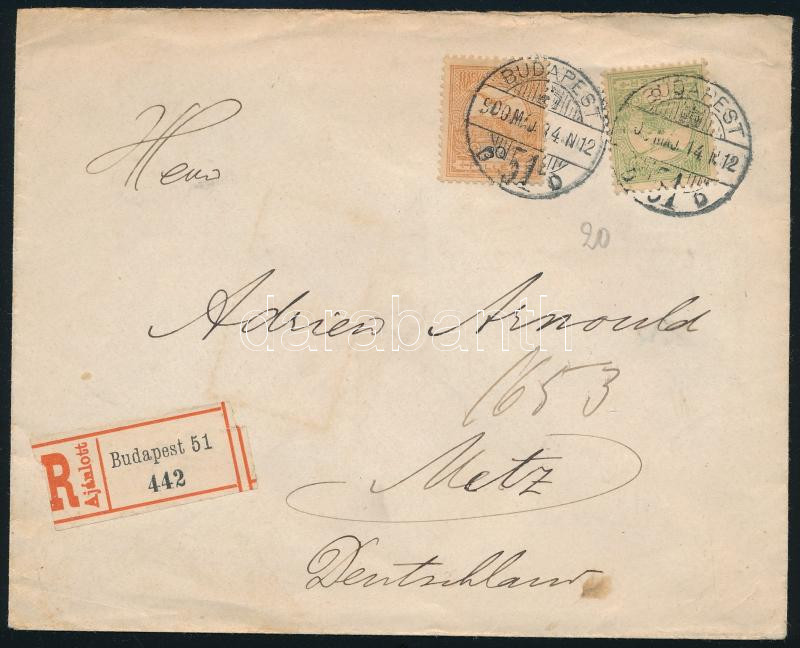 BUDAPEST
900 MAJ. 14. N.12
51
BUDAPEST
MAJ. 14. N.12
51
Herrn
20
Adrien Arnould
darabanth
1653
R
Ajánlott
Budapest 51
442
Metz
Deutschland